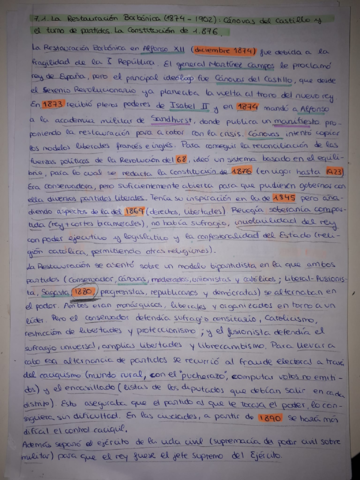 7.1. La Restauración Borbónica (1874 - 1902): Cánovas del Castillo y
el turno de partidos. La Constitución de 1.876
La Restauración Borbónica en Alfonso XII (diciembre 1874) fue debida a la
fragilidad de la I República. El general Martínez Campos le proclamó
rey de España, pero el principal ideólogo fue Cánovas del Castillo, que desde
el Sexenio Revolucionario ya planeaba la vuelta al trono del nuevo rey.
En 1873 recibió plenos poderes de Isabel II y en 1874 mandó a Alfonso
a la academia militar de Sandhurst, donde publica un manifiesto pro-
poniendo la restauración para acabar con la crisis. Cánovas intentó copiar
los modelos liberales francés e inglés. Para conseguir la reconciliación de las
fuerzas políticas de la Revolución del 68, ideó un sistema basado en el equili-
brio, para lo cual se redacta la constitución de 1876 (en vigor hasta 1923)
Era conservadora, pero suficientemente abierta para que pudiesen gobernar con
ella diversos partidos liberales. Tenía su inspiración en la de 1845 pero aña-
diendo aspectos de la del 1869 (derechos, libertades). Recogía soberanía compar-
tida (rey + cortes bicamerales), no había sufragio, inviolabilidad del rey
con poder ejecutivo y legislativo y la confesionalidad del Estado (reli-
gión católica, permitiendo otras religiones).
La Restauración se asentó sobre un modelo bipartidista en la que ambos
partidos (conservador, Cánovas, moderados, unionistas y católicos; liberal-fusionis-
ta, Sagasta, 1880, progresistas, republicanos y demócratas) se alternaban en
el poder. Ambos eran monárquicos, liberales y organizados en torno a un
líder. Pero el conservador defendía sufragio censitario, catolicismo,
restricción de libertades y proteccionismo; y el fusionista defendía el
sufragio universal, amplias libertades y librecambismo. Para llevar a
cabo esa alternancia de partidos se recurrió al fraude electoral a través
del caciquismo (mundo rural, con el "pucherazo", computar votos no emiti-
dos) y el encasillado (listas de los diputados que debían salir en cada
distrito). Esto aseguraba que el partido al que le tocara el poder lo con-
siguiera sin dificultad. En las ciudades, a partir de 1890 se hará más
difícil el control
Además separó el ejército de la vida civil (supremacía del poder civil sobre
militar) para que el rey fuese el jefe supremo del Ejército.